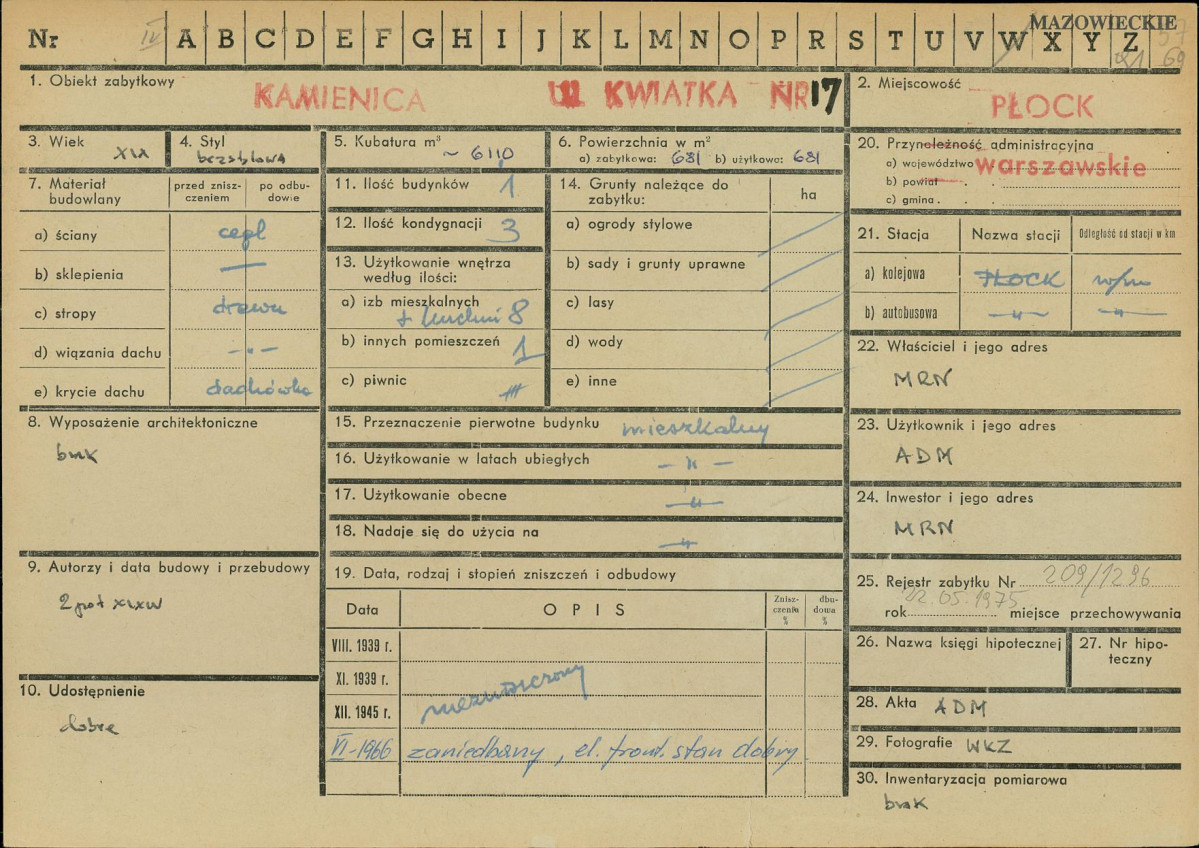 MAZOWIECKIE
Nr IV A B C D E F G H I J K L M N O P R S T U V W X Y Z
69
1. Obiekt zabytkowy
KAMIENICA UL KWIATKA NR 17
2. Miejscowość
PŁOCK
3. Wiek XIX
4. Styl bezstylowa
5. Kubatura m³ ~ 6110
6. Powierzchnia w m²
a) zabytkowa: 681 b) użytkowa: 681
7. Materiał budowlany
przed zniszczeniem
po odbudowie
a) ściany cegl
b) sklepienia —
c) stropy drewn
d) wiązania dachu -"-
e) krycie dachu dachówka
8. Wyposażenie architektoniczne
brak
9. Autorzy i data budowy i przebudowy
2 poł XIX w
10. Udostępnienie
dobre
11. Ilość budynków 1
12. Ilość kondygnacji 3
13. Użytkowanie wnętrza
według ilości:
a) izb mieszkalnych
+ kuchni 8
b) innych pomieszczeń 1
c) piwnic
14. Grunty należące do
zabytku:
ha
a) ogrody stylowe
b) sady i grunty uprawne
c) lasy
d) wody
e) inne
15. Przeznaczenie pierwotne budynku mieszkalny
16. Użytkowanie w latach ubiegłych — " —
17. Użytkowanie obecne — " —
18. Nadaje się do użycia na — " —
19. Data, rodzaj i stopień zniszczeń i odbudowy
Data OPIS Znisz-
czenia
%
dbu-
dowa
%
VIII. 1939 r.
XI. 1939 r.
XII. 1945 r. niezniszczony
VI-1966 zaniedbany, el. front. stan dobry
20. Przynależność administracyjna
a) województwo warszawskie
b) powiat
c) gmina
21. Stacja Nazwa stacji Odległość od stacji w km
a) kolejowa PŁOCK w/m
b) autobusowa — " — — " —
22. Właściciel i jego adres
MRN
23. Użytkownik i jego adres
ADM
24. Inwestor i jego adres
MRN
25. Rejestr zabytku Nr 209/1296
rok 22.05.1975 miejsce przechowywania
26. Nazwa księgi hipotecznej
27. Nr hipo-
teczny
28. Akta ADM
29. Fotografie WKZ
30. Inwentaryzacja pomiarowa
brak